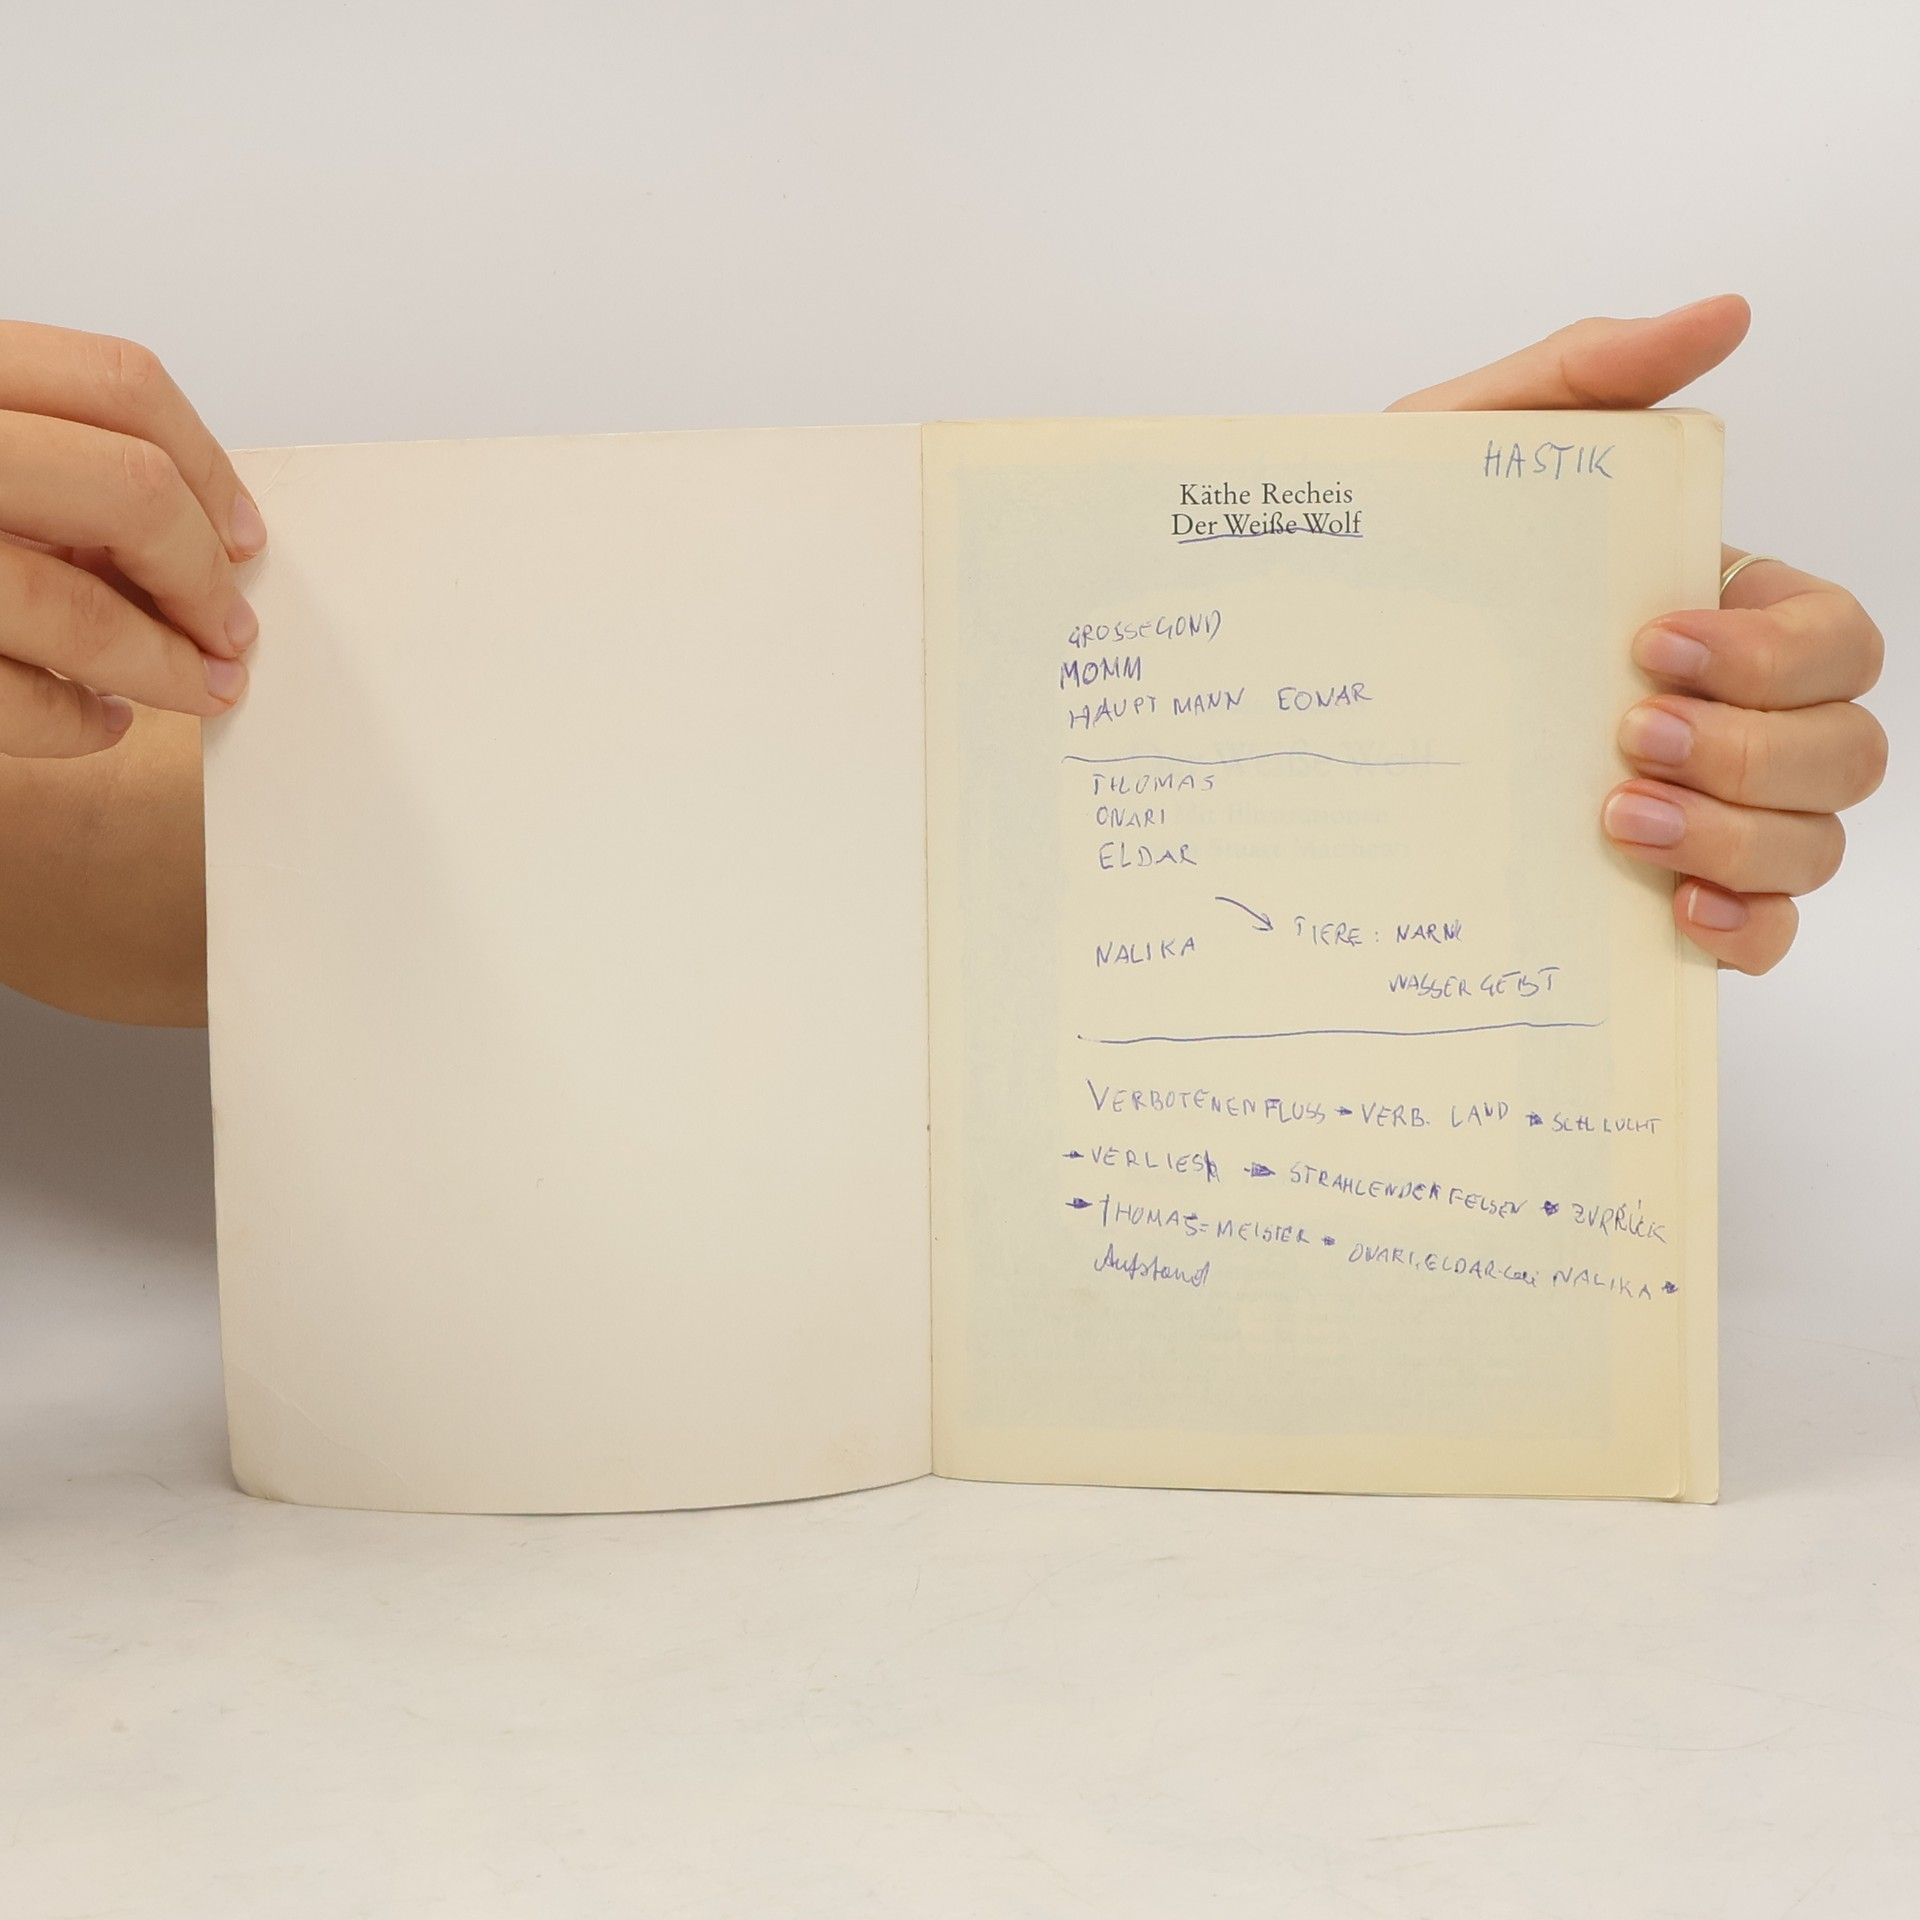 HASTIK
Käthe Recheis
Der Weiße Wolf
GROSSEGOND
MOMM
HAUPTMANN EONAR
THOMAS
ONARI
ELDAR
NALIKA → TIERE: NARNI
WASSERGEIST
VERBOTENEN FLUSS → VERB. LAND → SCHLUCHT
→ VERLIES → STRAHLENDER FELSEN → ZURÜCK
→ THOMAS = MEISTER → ONARI, ELDAR bei NALIKA →
Aufstand